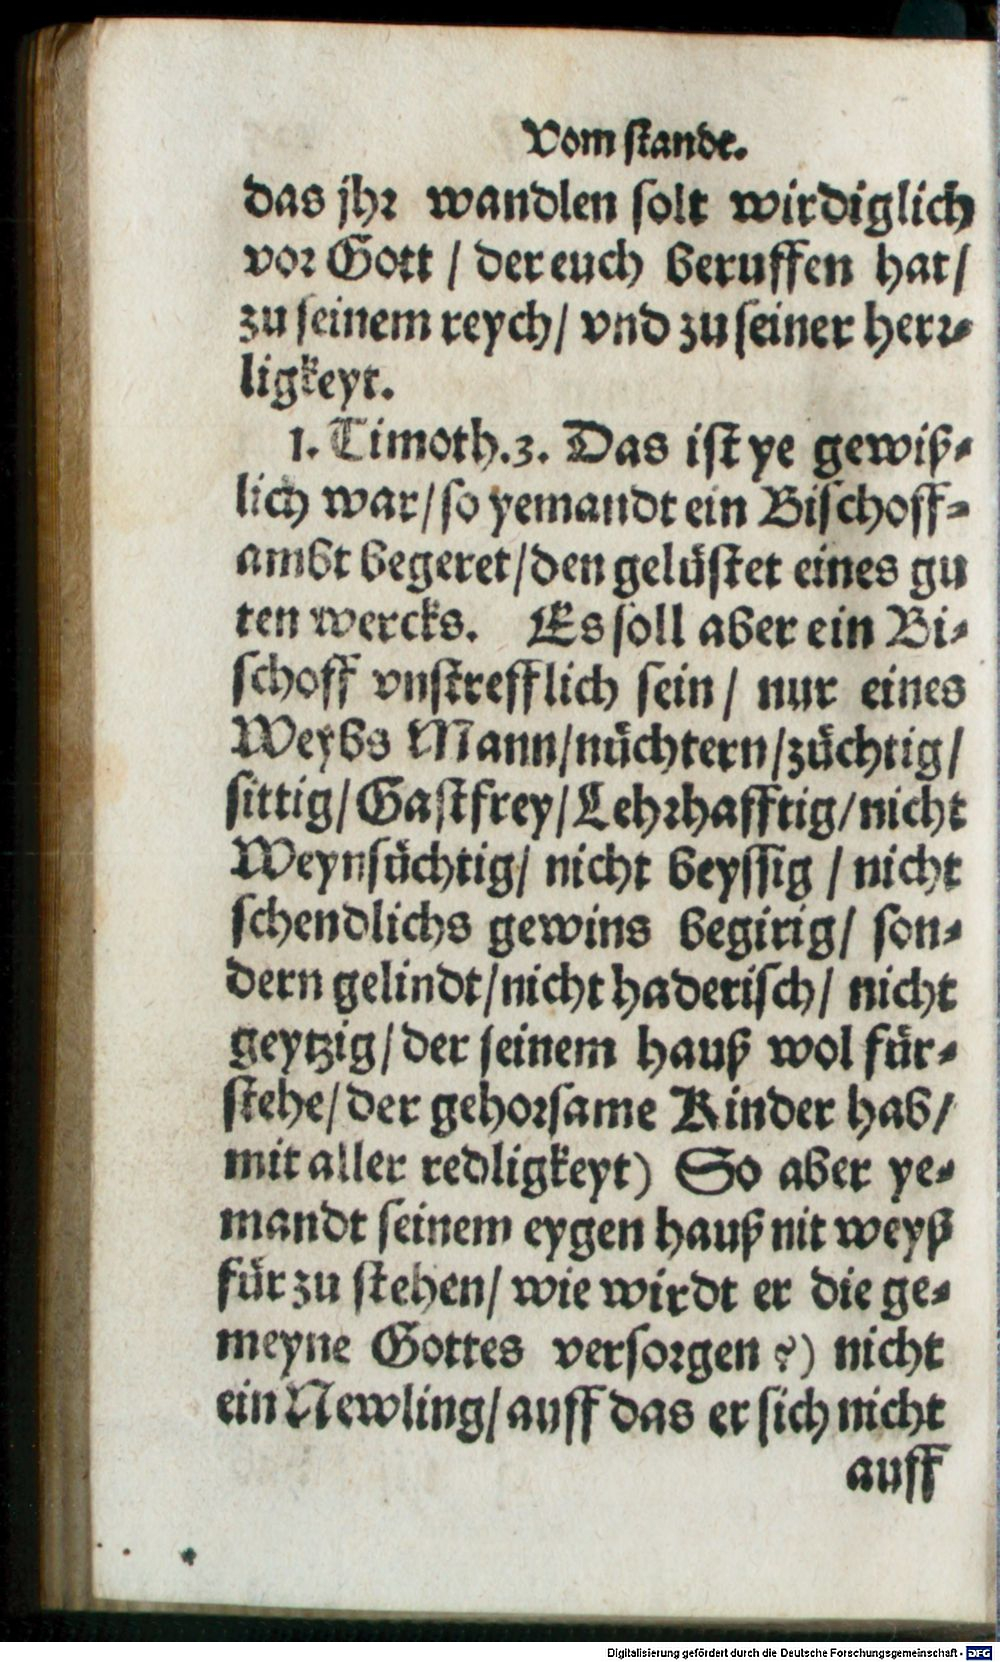 Vom standt.
das jhr wandlen solt wirdiglich
vor Gott / der euch beruffen hat /
zu seinem reych / vnd zu seiner herr-
ligkeyt.
1. Timoth. 3. Das ist ye gewiß-
lich war / so yemandt ein Bischoff-
ambt begeret / den gelüstet eines gu
ten wercks. Es soll aber ein Bi-
schoff vnstrefflich sein / nur eines
Weybs Mann / nüchtern / züchtig /
sittig / Gastfrey / Lehrhafftig / nicht
Weynsüchtig / nicht beyssig / nicht
schendlichs gewins begirig / son-
dern gelindt / nicht haderisch / nicht
geytzig / der seinem hauß wol für-
stehe / der gehorsame Kinder hab /
mit aller redligkeyt) So aber ye-
mandt seinem eygen hauß nit weyß
für zu stehen / wie wirdt er die ge-
meyne Gottes versorgen ?) nicht
ein Newling / auff das er sich nicht
auff
Digitalisierung gefördert durch die Deutsche Forschungsgemeinschaft - DFG